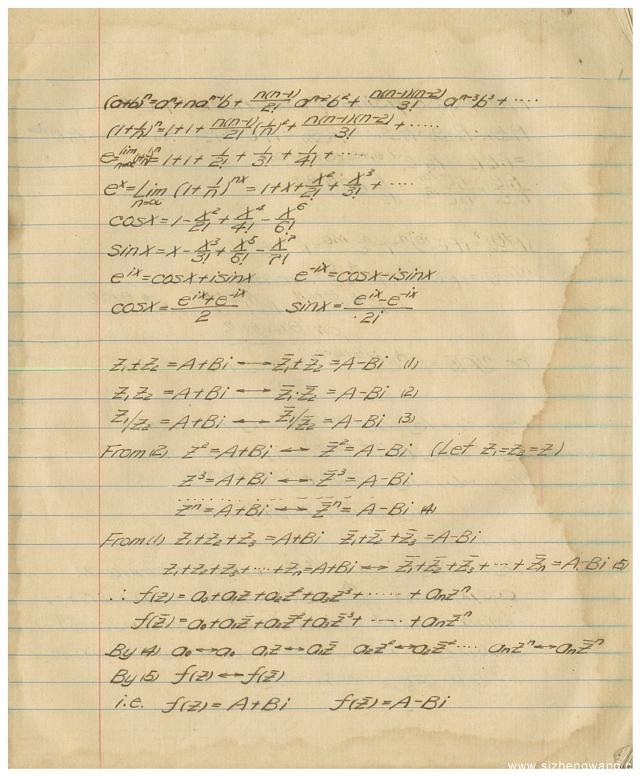 (a+b)ⁿ=aⁿ+naⁿ⁻¹b+ n(n-1)/2! aⁿ⁻²b²+ n(n-1)(n-2)/3! aⁿ⁻³b³+ ....
(1+1/n)ⁿ=1+1+ n(n-1)/2! (1/n)²+ n(n-1)(n-2)/3! + .....
e=lim n→∞ (1+1/n)ⁿ=1+1+ 1/2! + 1/3! + 1/4! + ....
eˣ=Lim n=∞ (1+1/n)ⁿˣ=1+x+x²/2!+x³/3!+ ....
cosx=1-x²/2!+x⁴/4!-x⁶/6!
sinx=x-x³/3!+x⁵/6!-x⁷/7!
eⁱˣ=cosx+isinx e⁻ⁱˣ=cosx-isinx
cosx=(eⁱˣ+e⁻ⁱˣ)/2 sinx=(eⁱˣ-e⁻ⁱˣ)/2i
z₁±z₂=A+Bi ↔ z̄₁±z̄₂=A-Bi (1)
z₁z₂=A+Bi ↔ z̄₁·z̄₂=A-Bi (2)
z₁/z₂=A+Bi ↔ z̄₁/z̄₂=A-Bi (3)
From(2) z²=A+Bi ↔ z̄²=A-Bi (Let z₁=z₂=z)
z³=A+Bi ↔ z̄³=A-Bi
zⁿ=A+Bi ↔ z̄ⁿ=A-Bi (4)
From(1) z₁+z₂+z₃=A+Bi z̄₁+z̄₂+z̄₃=A-Bi
z₁+z₂+z₃+....+zₙ=A+Bi ↔ z̄₁+z̄₂+z̄₃+...+z̄ₙ=A-Bi (5)
∴ f(z)=a₀+a₁z+a₂z²+a₃z³+ ..... + aₙzⁿ
f(z̄)=a₀+a₁z̄+a₂z̄²+a₃z̄³+ .... + aₙz̄ⁿ
By (4) a₀↔a₀ a₁z↔a₁z̄ a₂z²↔a₂z̄².... aₙzⁿ↔aₙz̄ⁿ
By (5) f(z)↔f(z̄)
i.e. f(z)=A+Bi f(z̄)=A-Bi